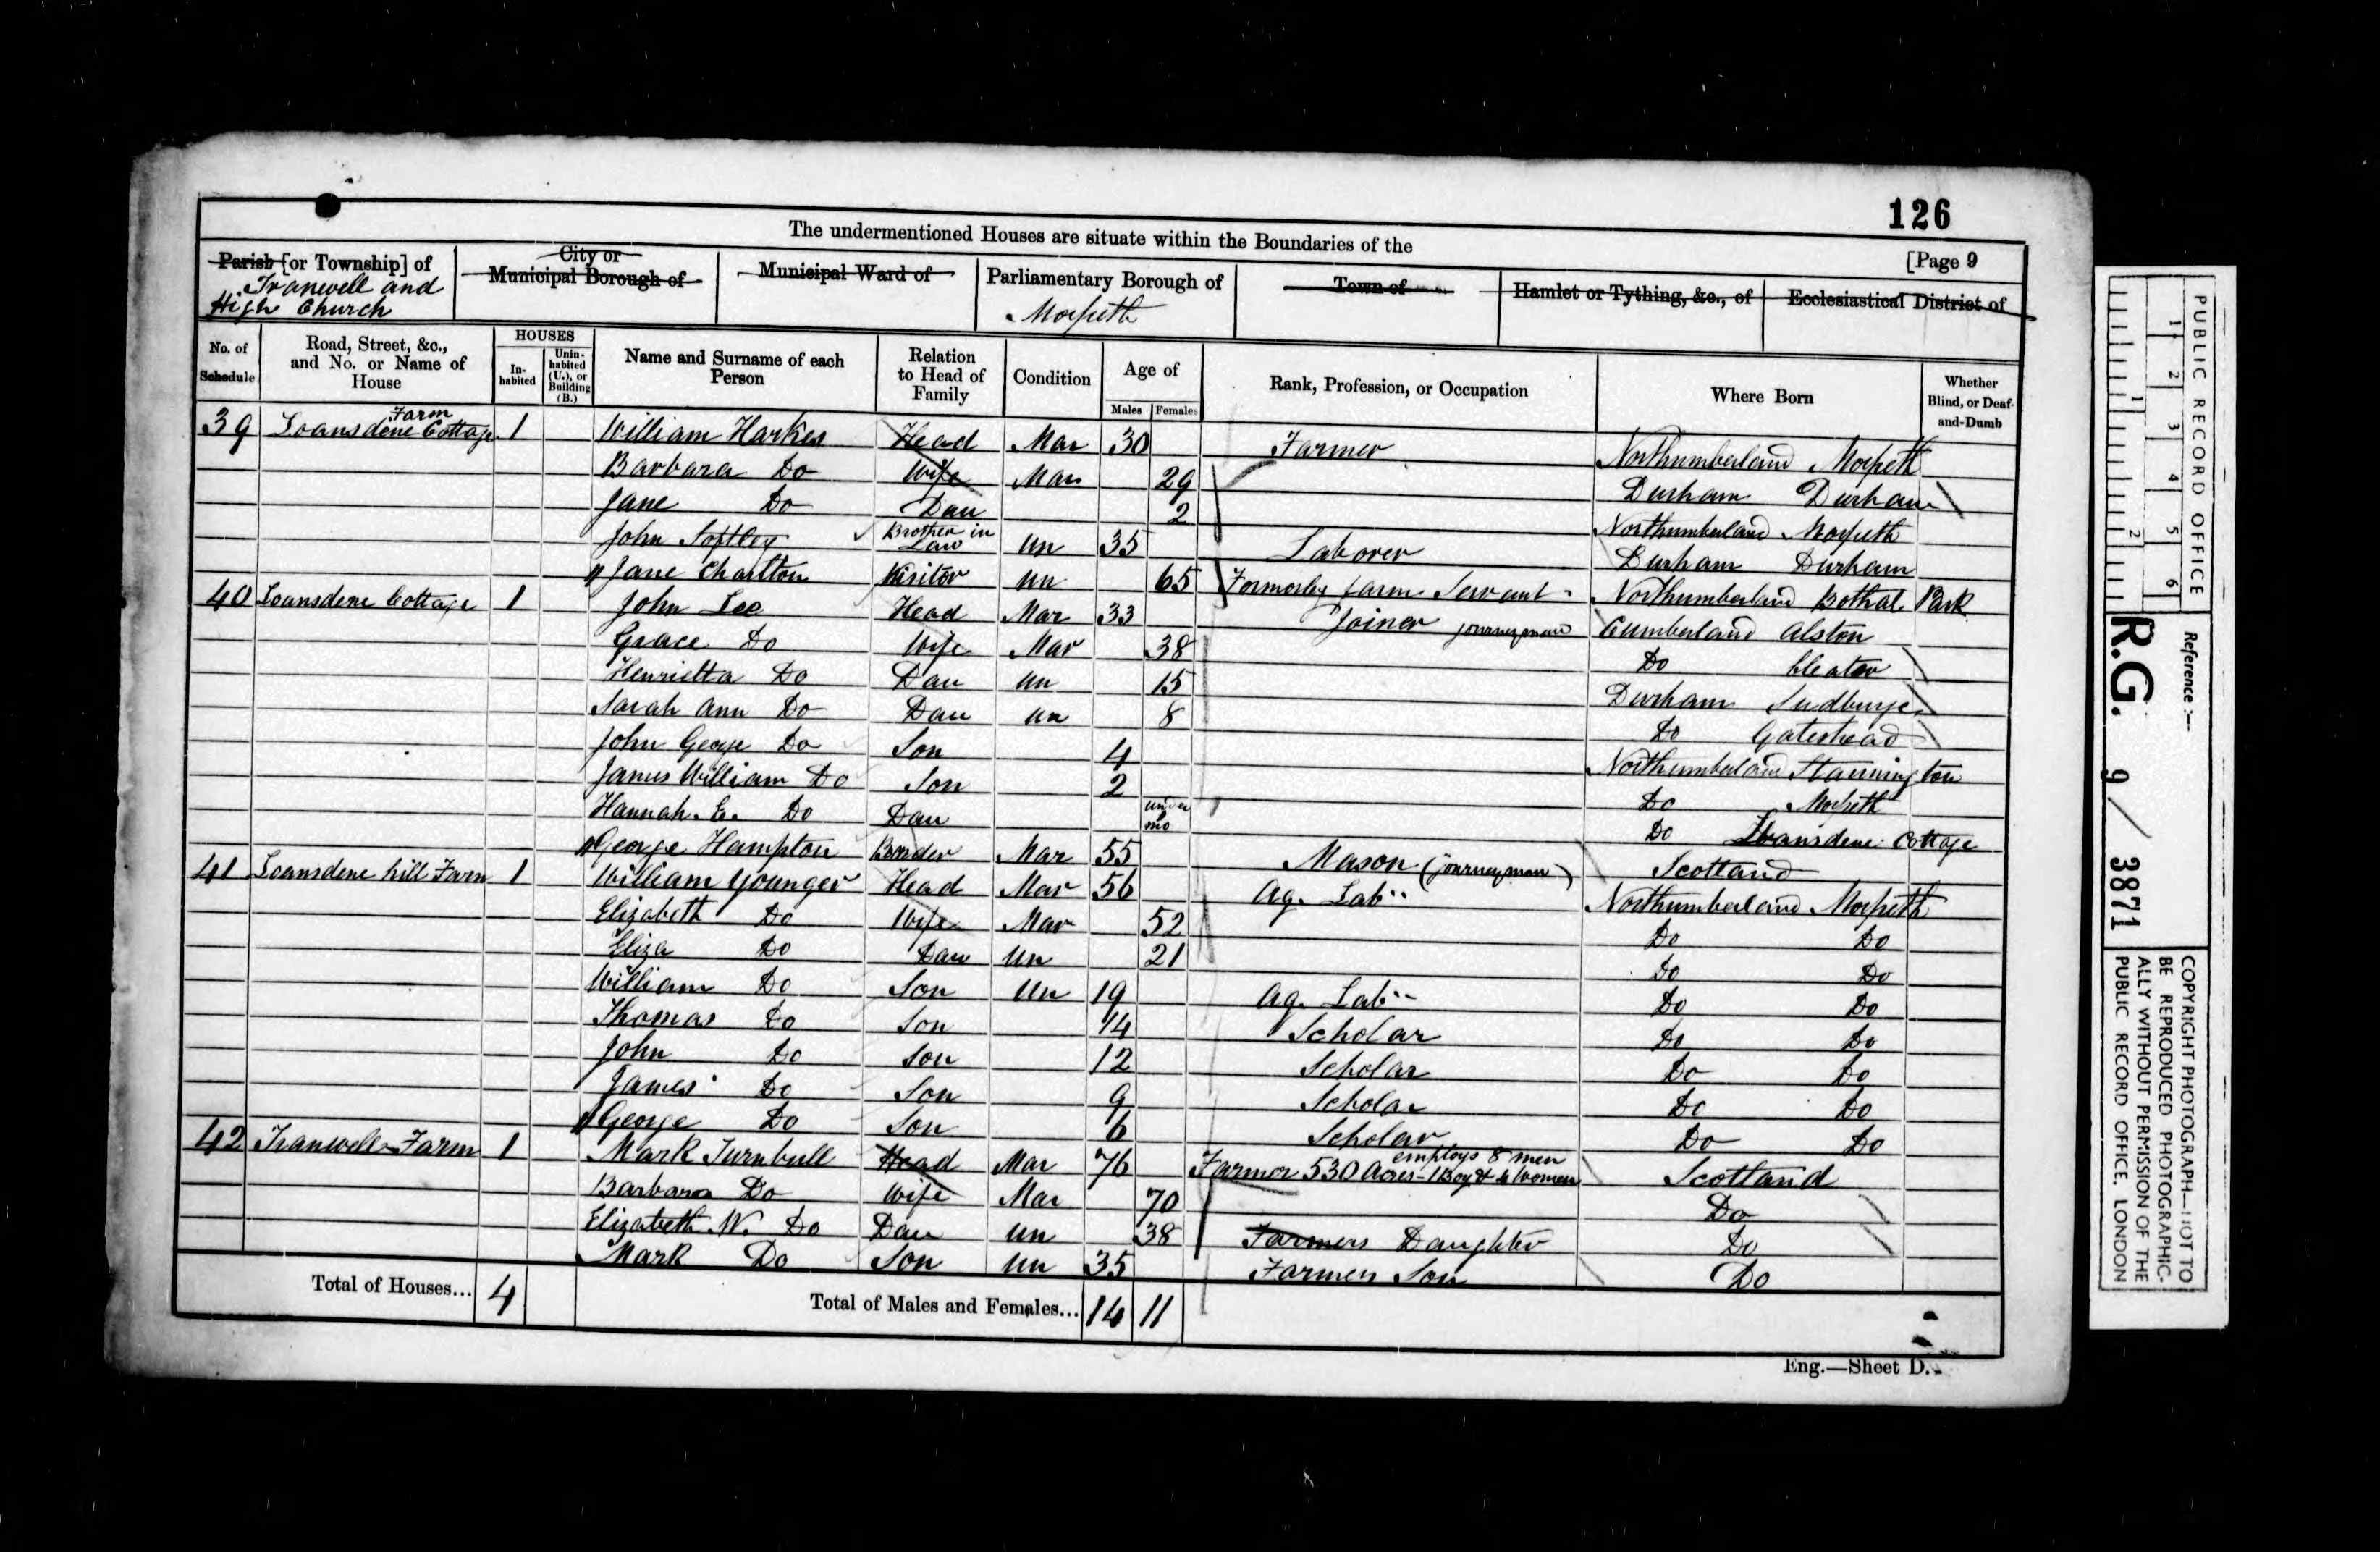 126
The undermentioned Houses are situate within the Boundaries of the
[Page 9
Parish [or Township] of
Tranwell and
High Church
City or
Municipal Borough of
Municipal Ward of
Parliamentary Borough of
Morpeth
Town of
Hamlet or Tything, &c., of
Ecclesiastical District of
No. of Schedule
Road, Street, &c., and No. or Name of House
HOUSES
In-habited
Unin-habited (U.), or Building (B.)
Name and Surname of each Person
Relation to Head of Family
Condition
Age of
Males
Females
Rank, Profession, or Occupation
Where Born
Whether Blind, or Deaf-and-Dumb
39 Loansdene Farm Cottage 1 William Harkes Head Mar 30 Farmer Northumberland Morpeth
Barbara Do Wife Mar 29 Durham Durham
Jane Do Dau 2 Northumberland Morpeth
John Softley Brother in Law Un 35 Laborer Durham Durham
Jane Charlton Visitor Un 65 Formerley farm Servant Northumberland Bothal Park
40 Loansdene Cottage 1 John Lee Head Mar 33 Joiner journeyman Cumberland Alston
Grace Do Wife Mar 38 Do Cleator
Henrietta Do Dau Un 15 Durham
Sarah Ann Do Dau Un 8 Do Gateshead
John George Do Son 4 Northumberland Stannington
James William Do Son 2 Do Morpeth
Hannah. E. Do Dau under mo Do Loansdene Cottage
George Hampton Boader Mar 55 Mason (journeyman) Scotland
41 Loansdene hill Farm 1 William Younger Head Mar 56 Ag. Lab Northumberland Morpeth
Elizabeth Do Wife Mar 52 Do Do
Eliza Do Dau Un 21 Do Do
William Do Son Un 19 Ag. Lab Do Do
Thomas Do Son 14 Scholar Do Do
John Do Son 12 Scholar Do Do
James Do Son 9 Scholar Do Do
George Do Son 6 Scholar Do Do
42 Tranwell Farm 1 Mark Turnbull Head Mar 76 Farmer 530 Acres employs 8 men - 1 Boy & 4 Women Scotland
Barbara Do Wife Mar 70 Do
Elizabeth W. Do Dau Un 38 Farmers Daughter Do
Mark Do Son Un 35 Farmers Son Do
Total of Houses... 4
Total of Males and Females... 14 11
Eng.—Sheet D.
PUBLIC RECORD OFFICE
1 2 3 4 5 6
1 2
Reference :—
R.G. 9 / 3871
COPYRIGHT PHOTOGRAPH—NOT TO
BE REPRODUCED PHOTOGRAPHIC-
ALLY WITHOUT PERMISSION OF THE
PUBLIC RECORD OFFICE, LONDON